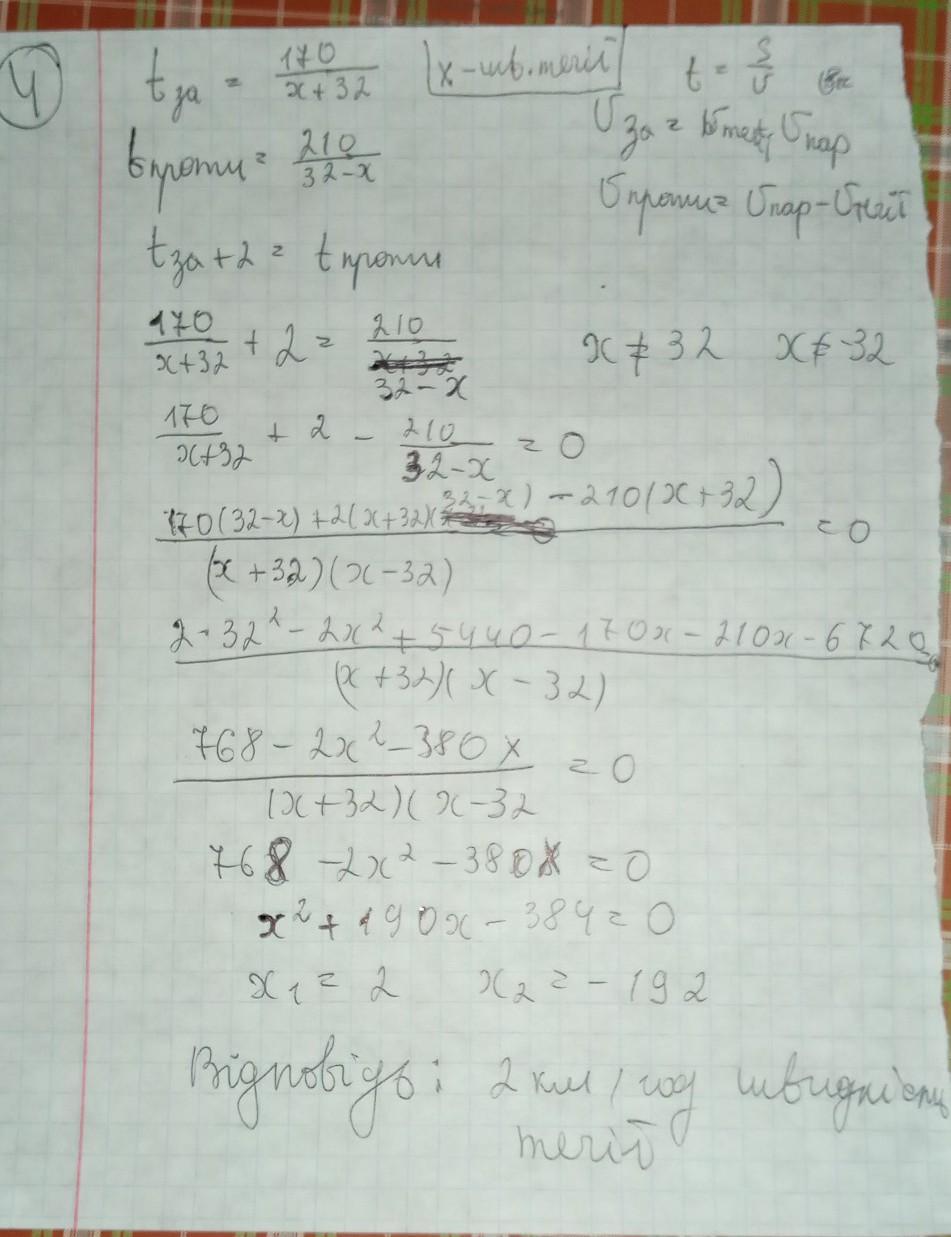 4
t за = 170/(x+32) x - шв. течії t = S/υ
υ за = υ теч + υ пар
t проти = 210/(32-x)
υ проти = υ пар - υ течії
t за + 2 = t проти
170/(x+32) + 2 = 210/(32-x) x ≠ 32 x ≠ -32
170/(x+32) + 2 - 210/(32-x) = 0
(170(32-x) + 2(x+32)(32-x) - 210(x+32))/((x+32)(x-32)) = 0
(2·32² - 2x² + 5440 - 170x - 210x - 6720)/((x+32)(x-32))
(768 - 2x² - 380x)/((x+32)(x-32) = 0
768 - 2x² - 380x = 0
x² + 190x - 384 = 0
x₁ = 2 x₂ = -192
Відповідь: 2 км/год швидкість
течії